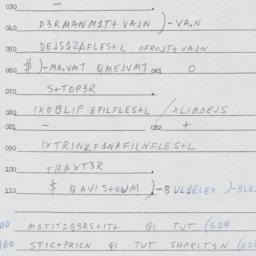 030 —
040 D3RMANM1T+VAJN )-VA.N
050 DEJS12AFLES+L OFROJT+VAJN
060 $)-MA.VM7 QMEJVM7 061 0
070 S+TOP3R
080 1XOBLIP EFILFLES+L /XLIBDEJS
081 — 082 +
090 1XTRINKFANAFILNFLES+L
100 TRAXT3R
110 $ QAVIS+OWM )-BULBELEX )-BLE
00 M1TIT1B3RS+IT+ QI TUT (624
400 STIC+PRICN QI TUT SHPRITSN (62